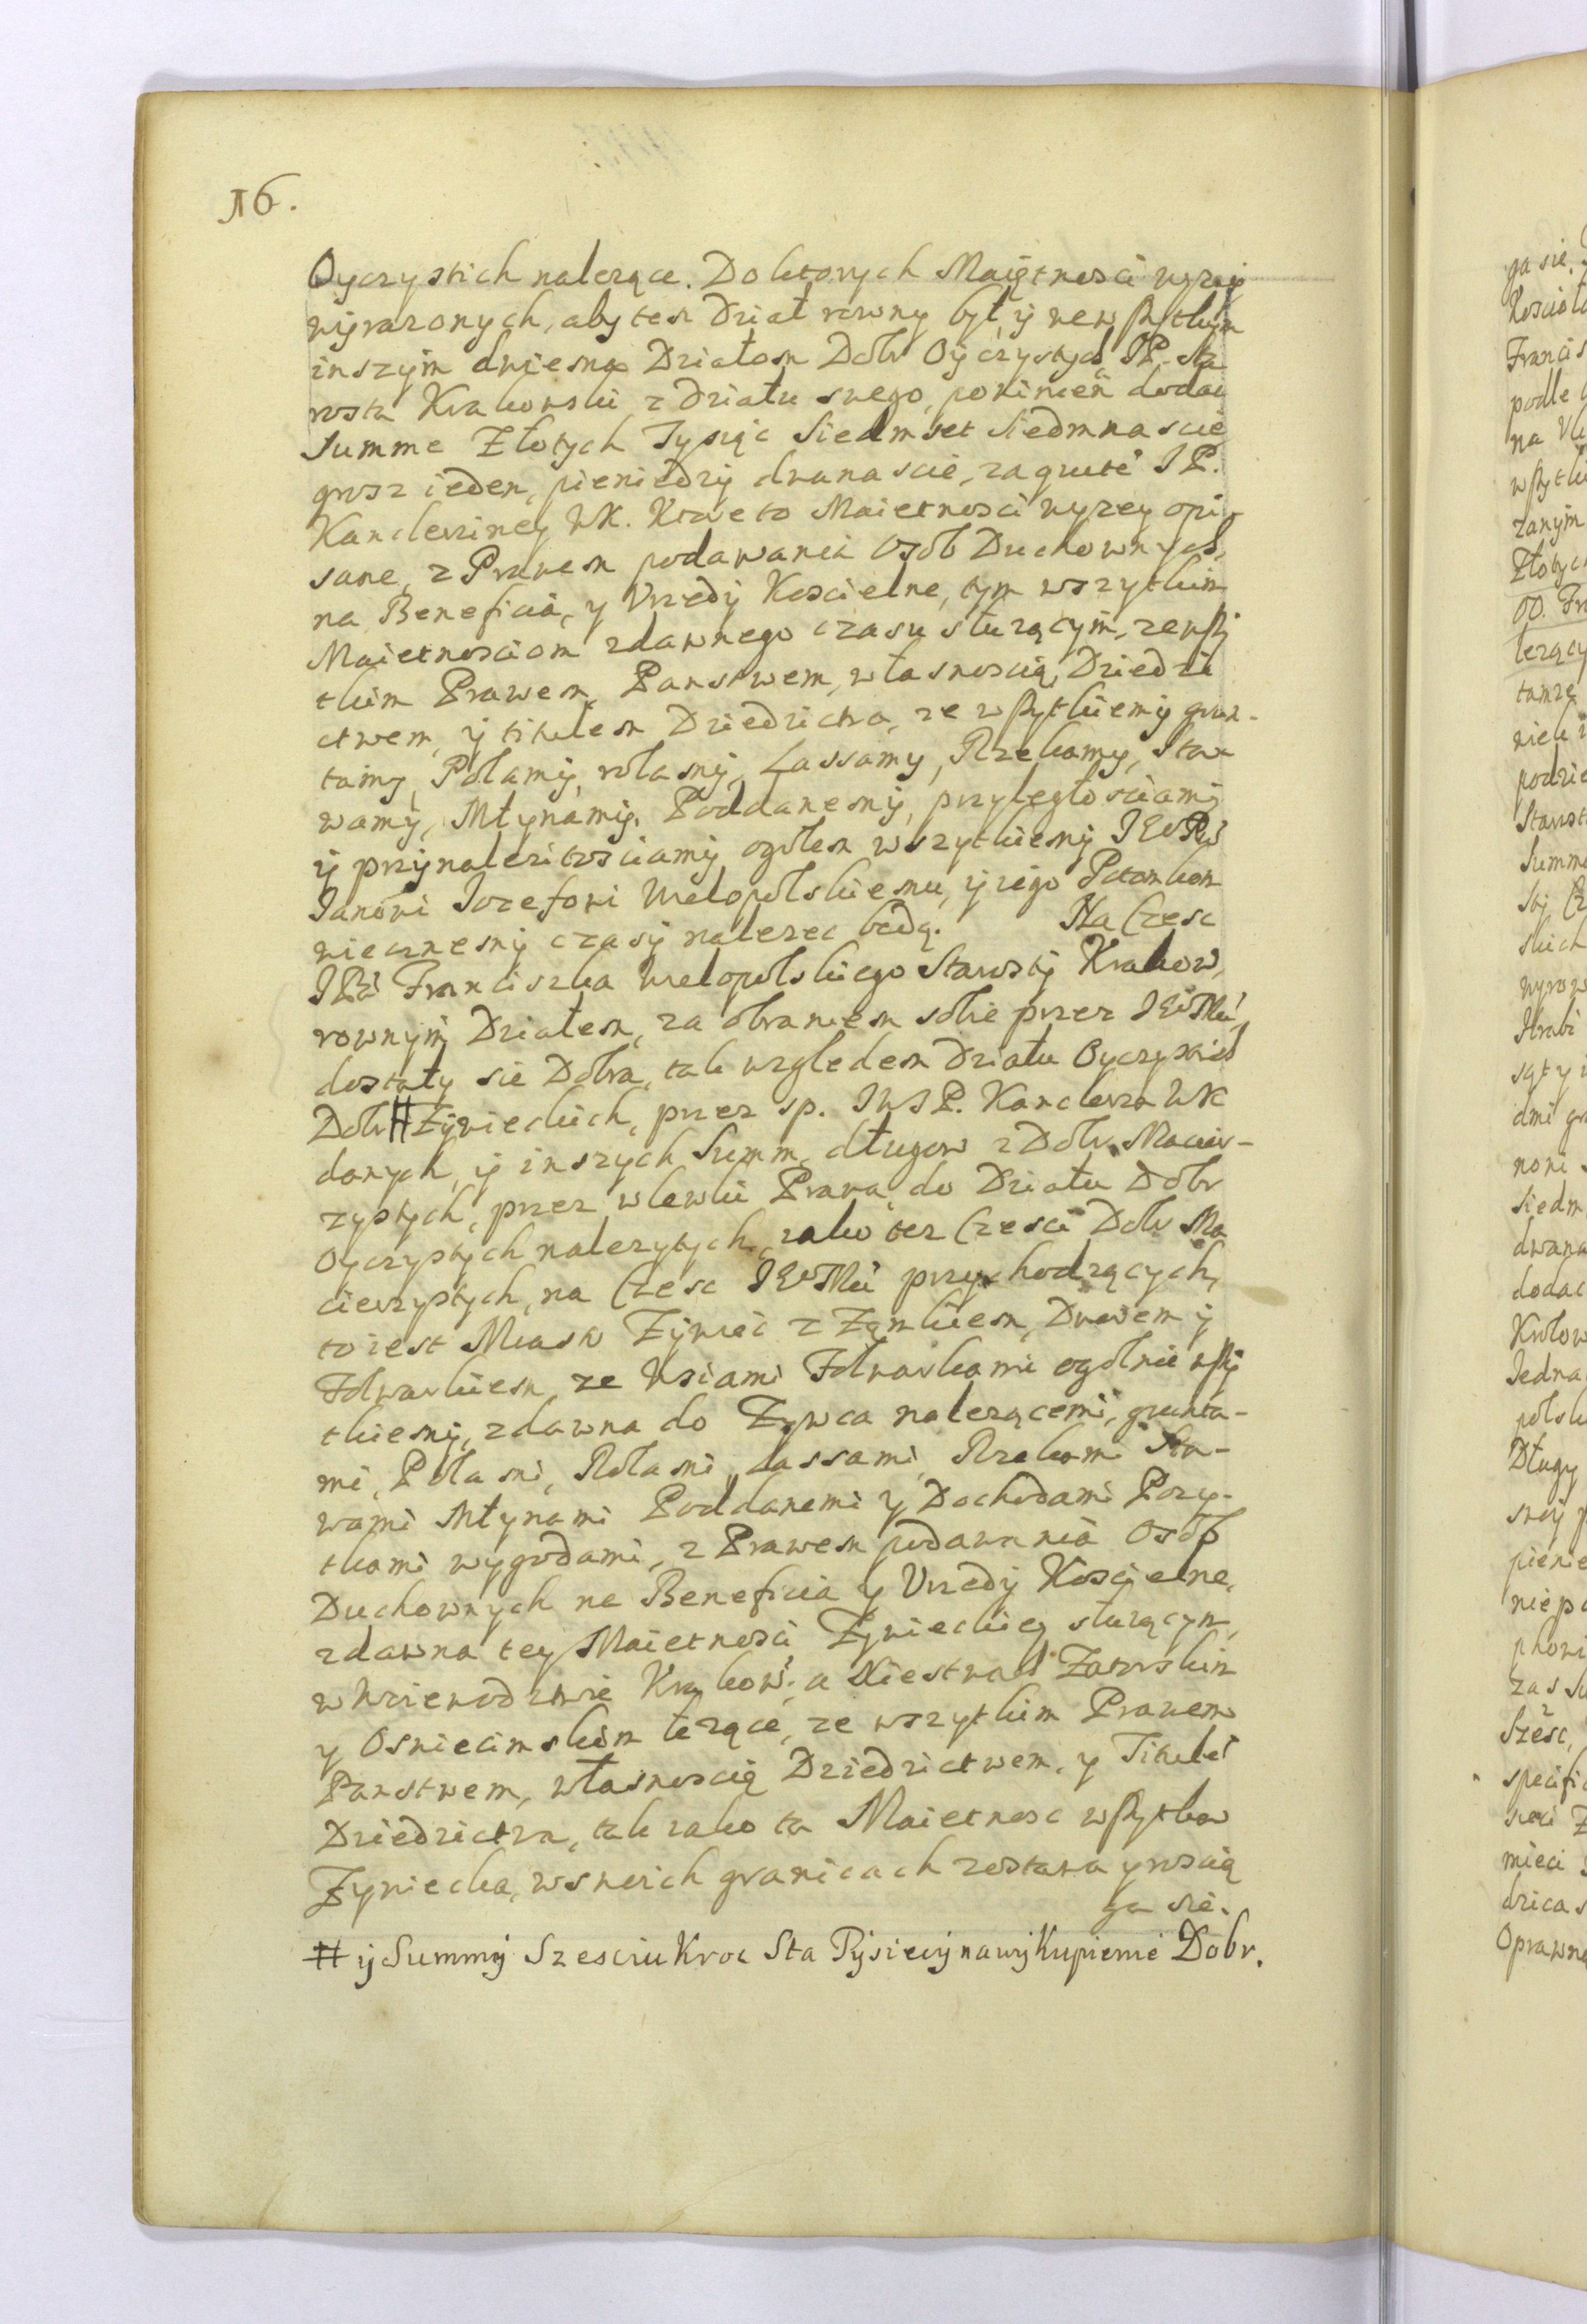 16.
Oyczystich nalezące. Do ktorych Maiętnosci wyzey
wyrazonych, aby ten Dział rowny był, y we wszytkim
inszym dwiema Działom Dobr Oyczystych, JP. Sta
rosta Krakowski z Działu swego, powinien dodać
Summe Złotych Tysiąc Siedmset Siedmnascie
grosz ieden, pieniedzy dwanascie, za quité J P.
Kanclerziney WK. Ktore to Maietnosci wyzey opi-
sane, z Prawem podawania Osób Duchownych,
na Beneficia, y Vrzedy Koscielne, tym wszytkim
Maietnosciom zdawnego czasu słuzącym, ze wszy
tkim Prawem, Panstwem, własnoscią, Dziedzi
ctwem, y titulem Dziedzictwa, ze wszytkiemy grun-
tamy, Polamy, rolamy, Lassamy, Rzekamy, Sta-
wamy, Młynamy, Poddanemy, przyległościamy
y przynalezitosciamy ogołem wszytkiemy JEoPu
Janowi Jozefowi Wielopolskiemu, y iego Potomkom
wiecznemy czasy nalezec będą. Na Czesc
JPa Franciszka Wielopolskiego Starosty Krakow,
rownym Działem, za obraniem sobie przez JEoMci,
dostały sie Dobra, tak wzgledem Działu Oyczystich
Dobr # Zywieckich, przez sp. JWJP. Kanclerza WK
danych, y inszych Summ, długow z Dobr Macier-
zystych, przez wlewki Prawa, do Działu Dobr
Oyczystych nalezytych, iako tez Czesci Dobr Ma
cierzystych, na Czesc JEoMci przychodzących,
to iest Miasto Zywiec z Zamkiem, Dworem y
Folwarkiem, ze Wsiami Folwarkami ogolnie wszy
tkiemy, zdawna do Zywca nalezącemi, grunta-
mi, Polami, Rolami, Lassami, Rzekami Sta-
wami Młynami Poddanemi y Dochodami Pozy-
tkami wygodami, z Prawem podawania Osób
Duchownych na Beneficia y Vrzedy Koscielne,
zdawna tey Maietnosci Zywieckiey słuzącym,
w Woiewodztwie Krakow: a Xiestwach Zatorskim
y Osniecimskim lezące, ze wszytkim Prawem
Panstwem, własnoscią Dziedzictwem, y Titulem
Dziedzictwa, tak iako ta Maietnosc wszytka
Zywiecka, w swoich granicach zostawa y roscią
ga sie.
# y Summy Szesciu Kroc Sta Tysiecy na wykupienie Dobr.